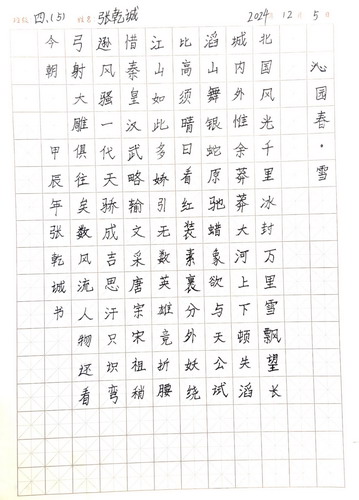 班级 四.(5) 姓名 张乾诚 2024年12月5日
沁园春·雪
北国风光千里冰封万里雪飘望长
城内外惟余莽莽大河上下顿失滔
滔山舞银蛇原驰蜡象欲与天公试
比高须晴日看红装素裹分外妖绕
江山如此多娇引无数英雄竟折腰
惜秦皇汉武略输文采唐宗宋祖稍
逊风骚一代天骄成吉思汗只识弯
弓射大雕俱往矣数风流人物还看
今朝 甲辰年张乾城书